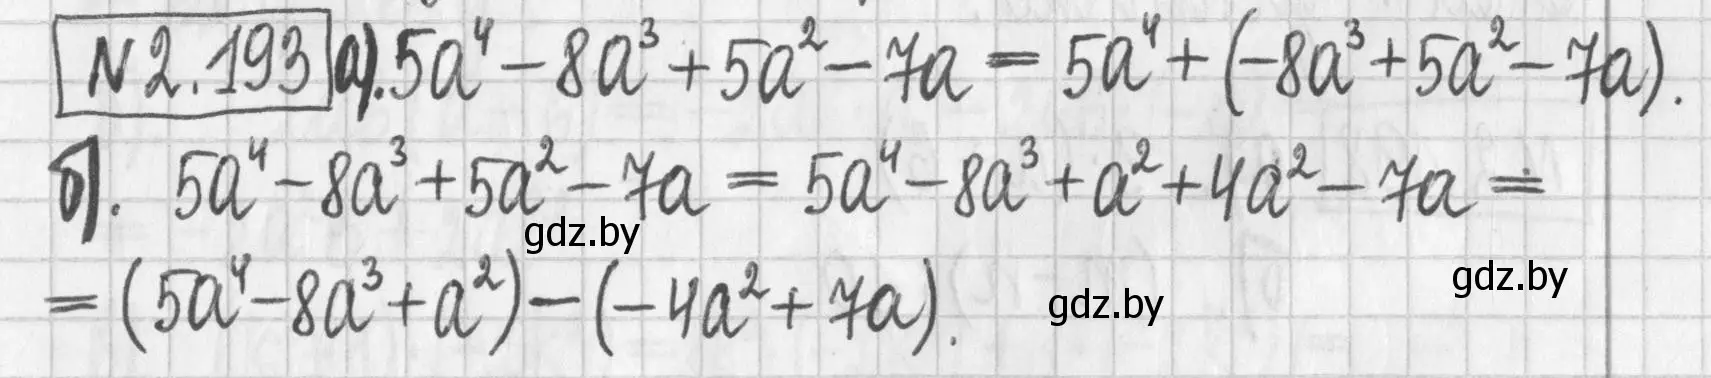 №2.193 а). 5a⁴ - 8a³ + 5a² - 7a = 5a⁴ + (-8a³ + 5a² - 7a).
б). 5a⁴ - 8a³ + 5a² - 7a = 5a⁴ - 8a³ + a² + 4a² - 7a =
gdz.by
= (5a⁴ - 8a³ + a²) - (-4a² + 7a).
gdz.by
gdz.by